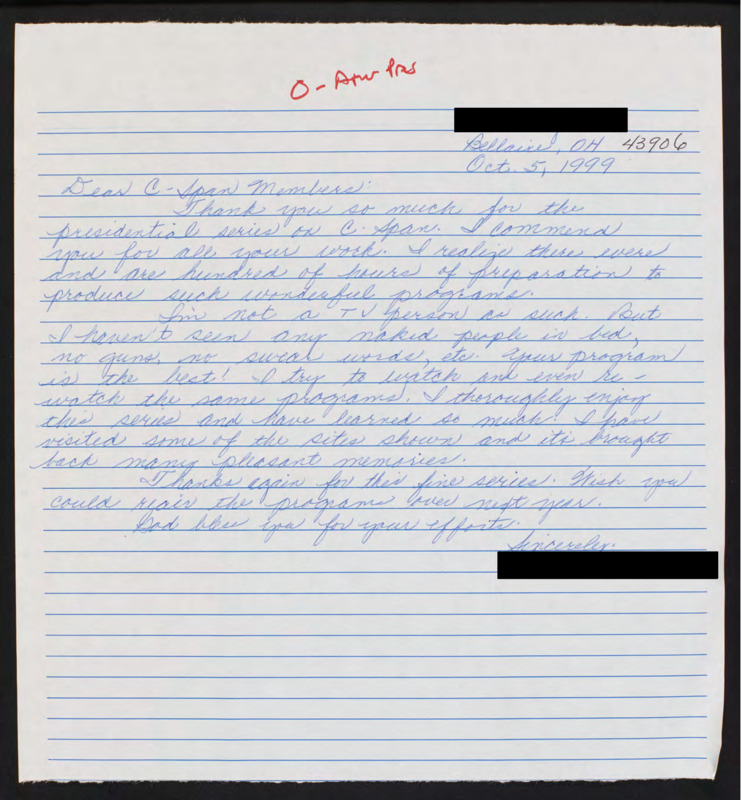 O - Amer Pres
Bellaire, OH 43906
Oct. 5, 1999
Dear C-Span Members:
Thank you so much for the
presidential series on C. Span. I commend
you for all your work. I realize there were
and are hundred of hours of preparation to
produce such wonderful programs.
I'm not a TV person as such. But
I haven't seen any naked people in bed,
no guns, no swear words, etc. Your program
is the best! I try to watch and even re-
watch the same programs. I thoroughly enjoy
this series and have learned so much. I have
visited some of the sites shown and it's brought
back many pleasant memories.
Thanks again for this fine series. Wish you
could reair the programs over next year.
God bless you for your efforts.
Sincerely,